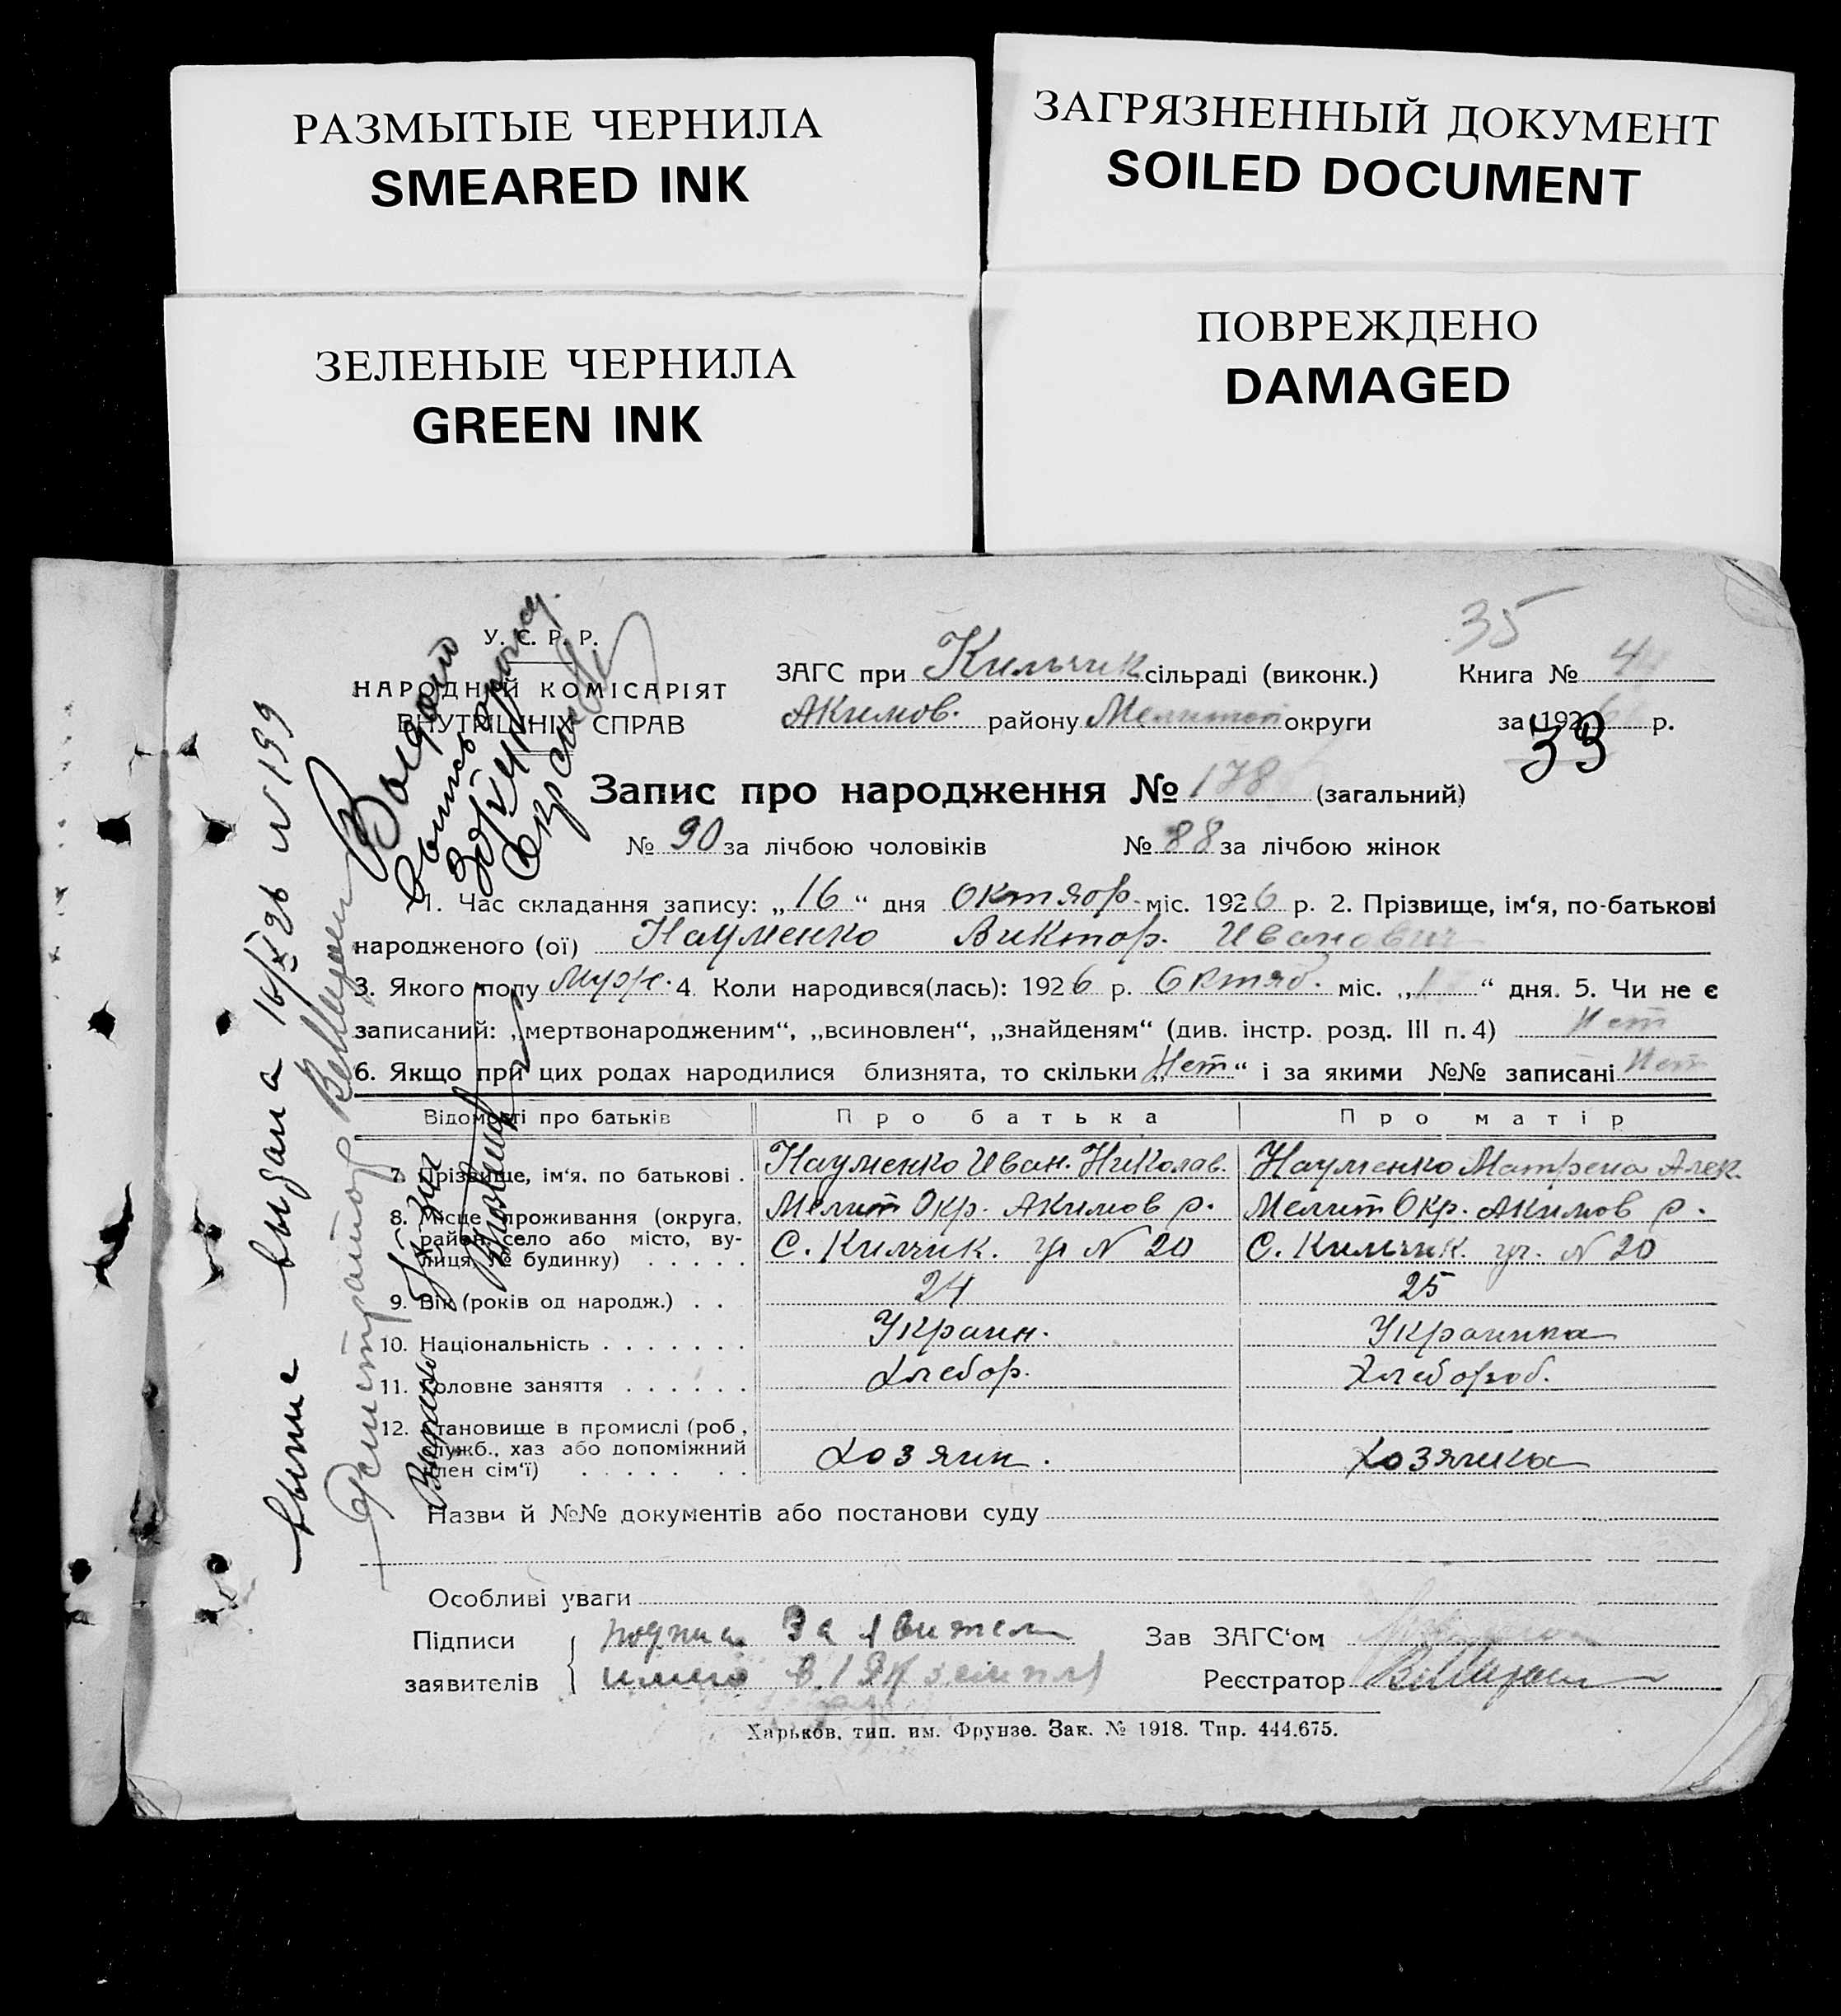 РАЗМЫТЫЕ ЧЕРНИЛА
SMEARED INK
ЗАГРЯЗНЕННЫЙ ДОКУМЕНТ
SOILED DOCUMENT
ЗЕЛЕНЫЕ ЧЕРНИЛА
GREEN INK
ПОВРЕЖДЕНО
DAMAGED
35
У. С. Р. Р.
НАРОДНІЙ КОМІСАРІЯТ
ВНУТРІШНІХ СПРАВ
ЗАГС при Кильчик сільраді (виконк.) Книга № 4
Акимов. району Мелитоп округи за 192 р.
33
Запис про народження № 178 (загальний)
№ 90 за лічбою чоловіків № 88 за лічбою жінок
1. Час складання запису: „16“ дня Октябр. міс. 1926 р. 2. Прізвище, ім‘я, по-батькові
народженого (ої) Науменко Виктор. Иванович
3. Якого полу муж. 4. Коли народився(лась): 1926 р. Октяб. міс. „1 “ дня. 5. Чи не є
записаний: „мертвонародженим“, „всиновлен“, „знайденям“ (див. інстр. розд. III п. 4) Нет
6. Якщо при цих родах народилися близнята, то скільки „Нет“ і за якими №№ записані Нет
Відомості про батьків Про батька Про матір
7. Прізвище, ім‘я, по батькові . Науменко Иван. Николав. Науменко Матрена Алек.
8. Місце проживання (округа, Мелит Окр. Акимов р. Мелит Окр. Акимов р.
район, село або місто, ву- С. Килчик. ул N 20 С. Кильчик. ул. N 20
лиця, № будинку) . . . . .
9. Вік (років од народж.) . . 24 25
10. Національність . . . . . . . Украин. Украинка
11. Головне заняття . . . . . . Хлебор. Хлебороб.
12. Становище в промислі (роб.,
служб., хаз або допоміжний
член сім‘ї) . . . . . . . Хозяин. Хозяика
Назви й №№ документів або постанови суду
Особливі уваги
Підписи подпис Заявител Зав ЗАГС‘ом
заявителів имею в 1 Экземпл Реєстратор
Харьков, тип. им. Фрунзе. Зак. № 1918. Тир. 444.675.
выпис выдана 16/X N 199
Регистратор